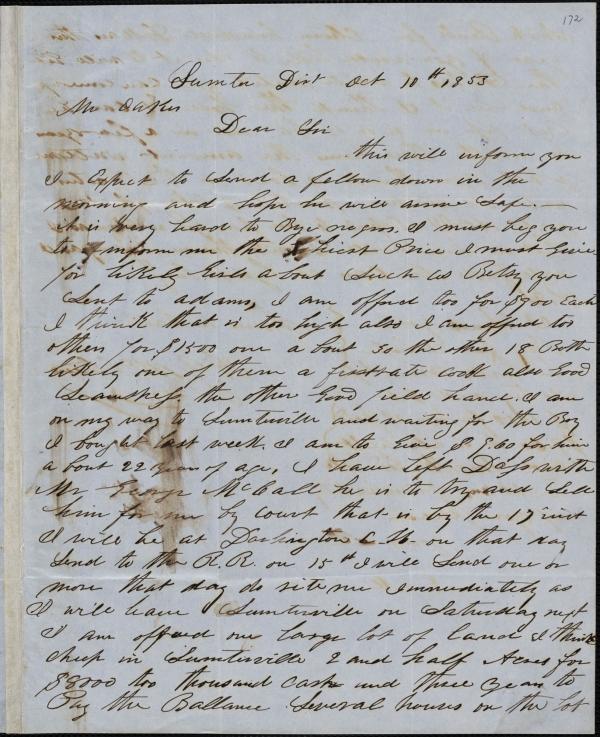 172
Sumter Dist Oct 10th 1853
Mr Oakes
Dear Sir
this will inform you
I Expect to Send a fellow down in the
morning and hope he will arrive Safe.
it is very hard to Bye negros. I must beg you
to inform me the Price I must Give
for likely Girls about Such as Betsy you
Sent to adams, I am offerd too for $900 Each
I think that is too high also I am offerd too
others for $1500 one a bout 30 the other 18 Both
likely one of them a firstrate cook also Good
Seamstress the other Good field hand. I am
on my way to Sumterville and waiting for the Boy
I bought last week. I am to Give $ 860 for him
a bout 22 years of age, I have left with
Mr George McCall he is to try and Sell
him for me by court that is by the 17 inst
I will be at Darlington C.H. on that day
Send to the R.R. on 15th I will Send one or
more that day do rite me Immediately as
I will leave Sumterville on Saturday next
I am offerd one large lot of land I think
cheap in Sumterville 2 and half Acres for
$8000 too thousand cash and three years to
Pay the Ballance Several houses on the lot